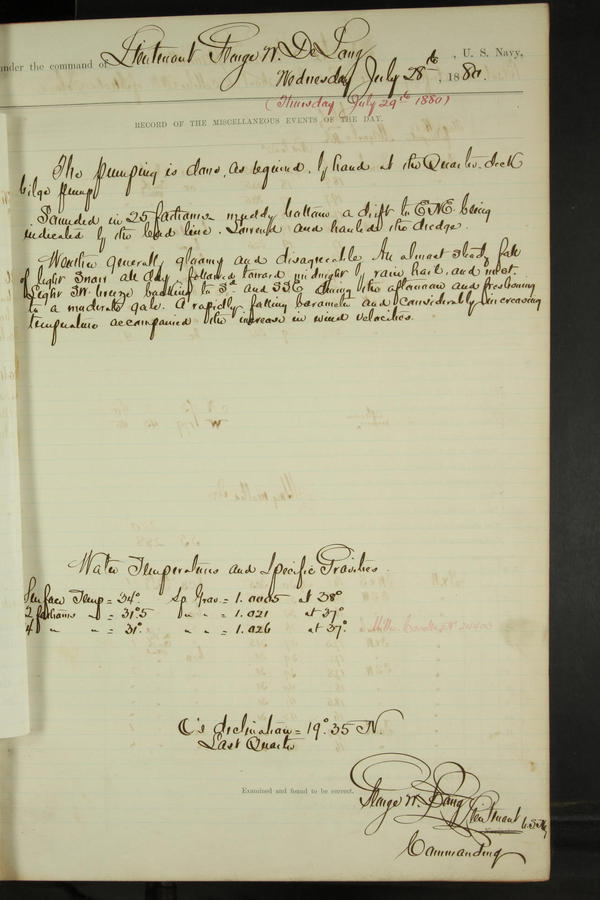 under the command of Lieutenant George W. De Long, U. S. Navy,
Wednesday July 28th, 1880.
(Thursday July 29th 1880)
RECORD OF THE MISCELLANEOUS EVENTS OF THE DAY.
The pumping is done, as required, by hand at the Quarter deck
bilge pump
Sounded in 25 fathoms muddy bottom a drift to ENE being
indicated by the lead line. Lowered and hauled the dredge.
Weather generally gloomy and disagreeable. An almost steady fall
of light snow all day followed toward midnight by rain hail and mist.
Light SW breeze backing to Sd. and SSE during the afternoon and freshening
to a moderate gale. A rapidly falling barometer and considerably increasing
temperature accompanied the increase in wind velocities.
Water Temperatures and Specific Gravities
Surface Temp = 34° Sp Grav. = 1.0005 at 38°
2 fathoms " = 31°.5 " " = 1.021 at 37°
4 " " = 31°. " " = 1.026 at 37°.
C's declination = 19° 35 N.
Last Quarter
Examined and found to be correct.
George W. De Long Lieutenant U.S.N.
Commanding